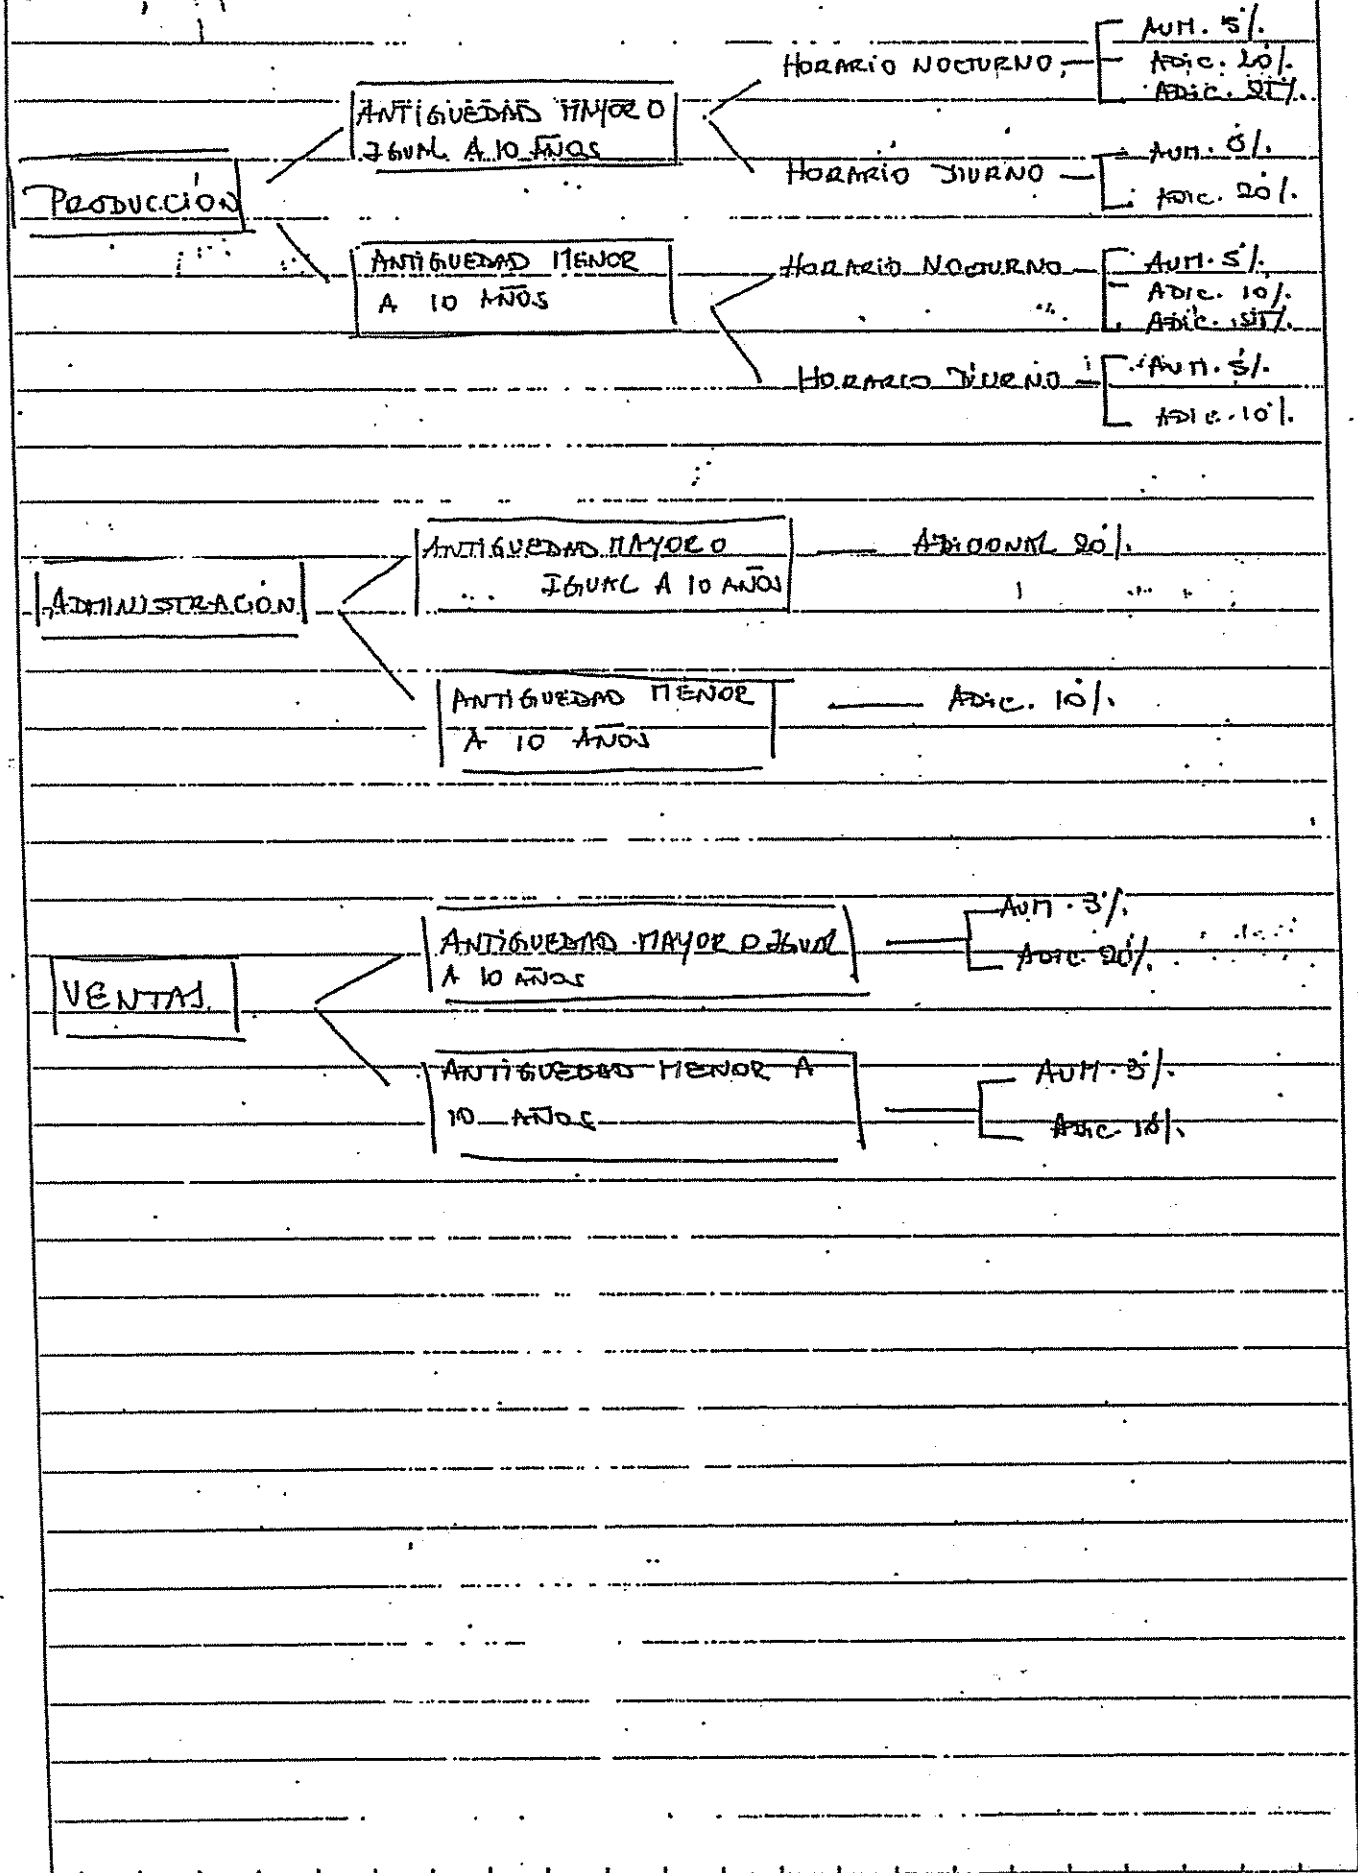 PRODUCCIÓN
ANTIGUEDAD MAYOR O
IGUAL A 10 AÑOS
HORARIO NOCTURNO
AUM. 5%.
ADIC. 20%.
ADIC.
HORARIO DIURNO
AUM.
ADIC. 20%.
ANTIGUEDAD MENOR
A 10 AÑOS
HORARIO NOCTURNO
AUM. 5%.
ADIC. 10%.
ADIC.
HORARIO DIURNO
AUM. 5%.
ADIC. 10%.
ADMINISTRACIÓN
ANTIGUEDAD MAYOR O
IGUAL A 10 AÑOS
ADICIONAL 20%.
ANTIGUEDAD MENOR
A 10 AÑOS
ADIC. 10%.
VENTAS
ANTIGUEDAD MAYOR O IGUAL
A 10 AÑOS
AUM. 3%.
ADIC. 20%.
ANTIGUEDAD MENOR A
10 AÑOS
AUM. 3%.
ADIC. 10%.